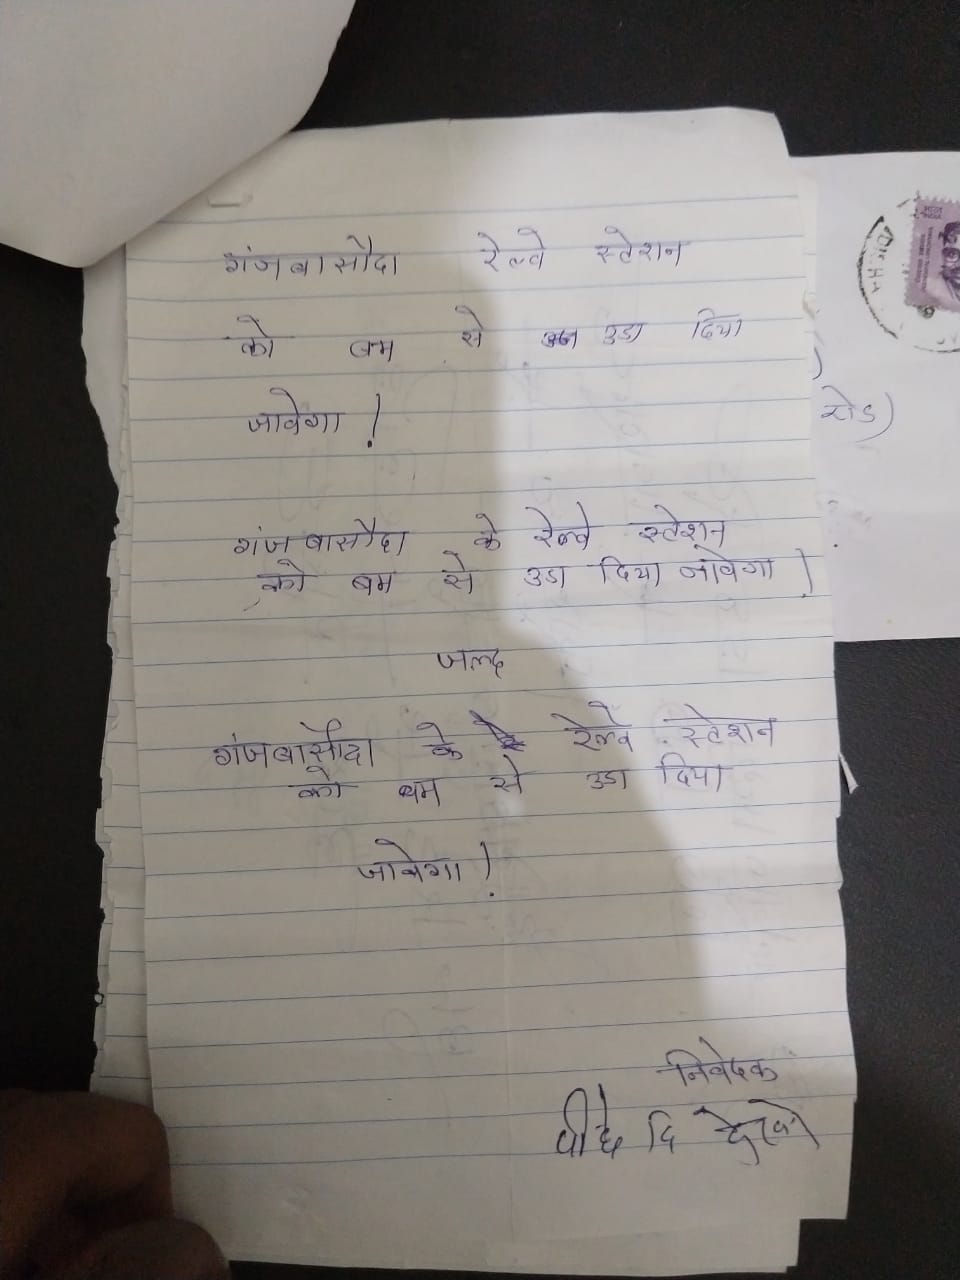 गंजबासौदा रेल्वे स्टेशन
को बम से उडा दिया
जावेगा !
गंजबासौदा के रेल्वे स्टेशन
को बम से उडा दिया जावेगा !
जल्द
गंजबासौदा के रेल्वे स्टेशन
को बम से उडा दिया
जावेगा !
निवेदक
रोड)